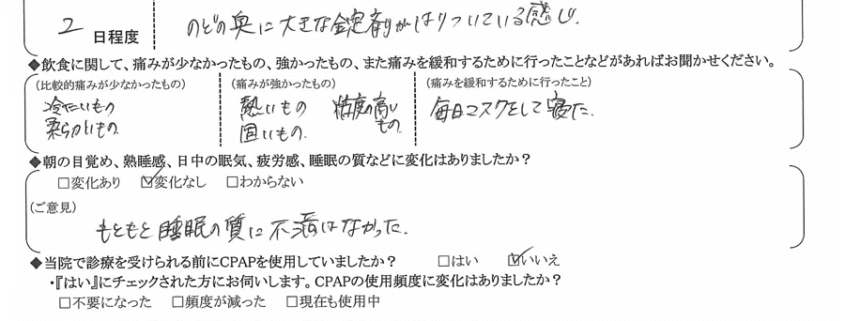 2 日程度 のどの奥に大きな錠剤がはりついている感じ.
◆飲食に関して、痛みが少なかったもの、強かったもの、また痛みを緩和するために行ったことなどがあればお聞かせください。
(比較的痛みが少なかったもの) (痛みが強かったもの) (痛みを緩和するために行ったこと)
冷たいもの 熱いもの 粘度の高い 毎日マスクをして寝た.
柔らかいもの 固いもの. もの.
◆朝の目覚め、熟睡感、日中の眠気、疲労感、睡眠の質などに変化はありましたか?
□変化あり ☑変化なし □わからない
(ご意見)
もともと睡眠の質に不満はなかった.
◆当院で診療を受けられる前にCPAPを使用していましたか? □はい ☑いいえ
・『はい』にチェックされた方にお伺いします。CPAPの使用頻度に変化はありましたか?
□不要になった □頻度が減った □現在も使用中